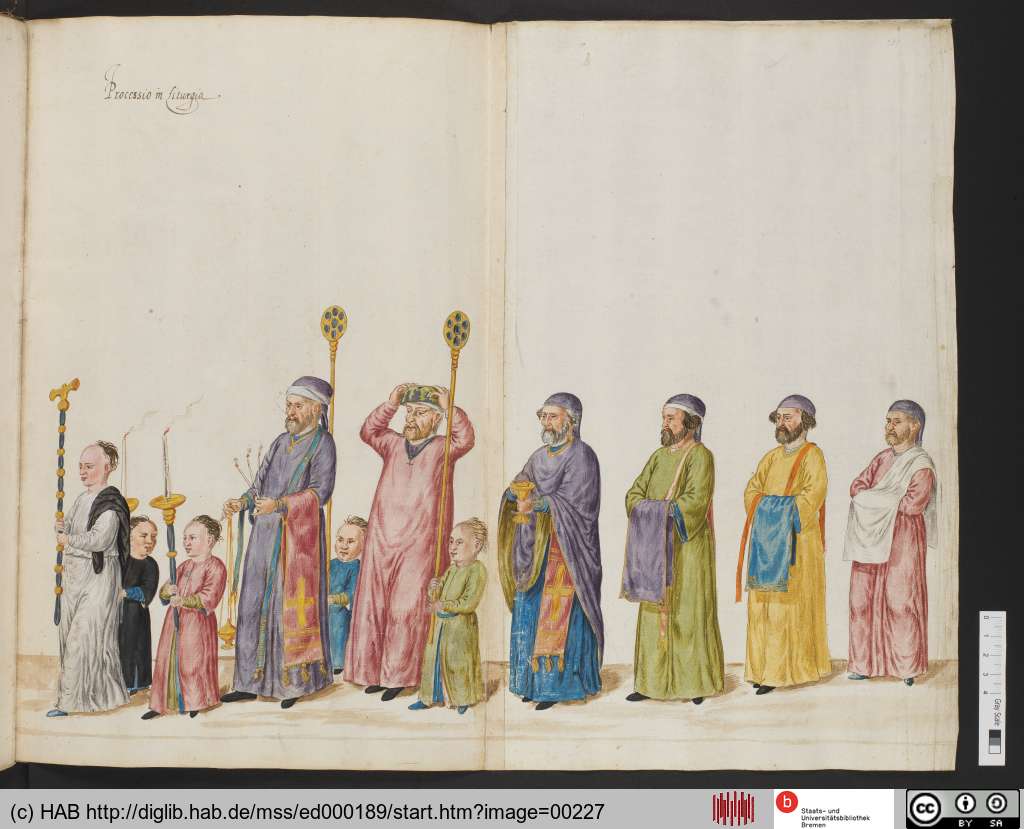 Processio in liturgia.
0 1 2 3 4
Gray Scale
(c) HAB http://diglib.hab.de/mss/ed000189/start.htm?image=00227
b
Staats- und
Universitätsbibliothek
Bremen
cc
BY SA